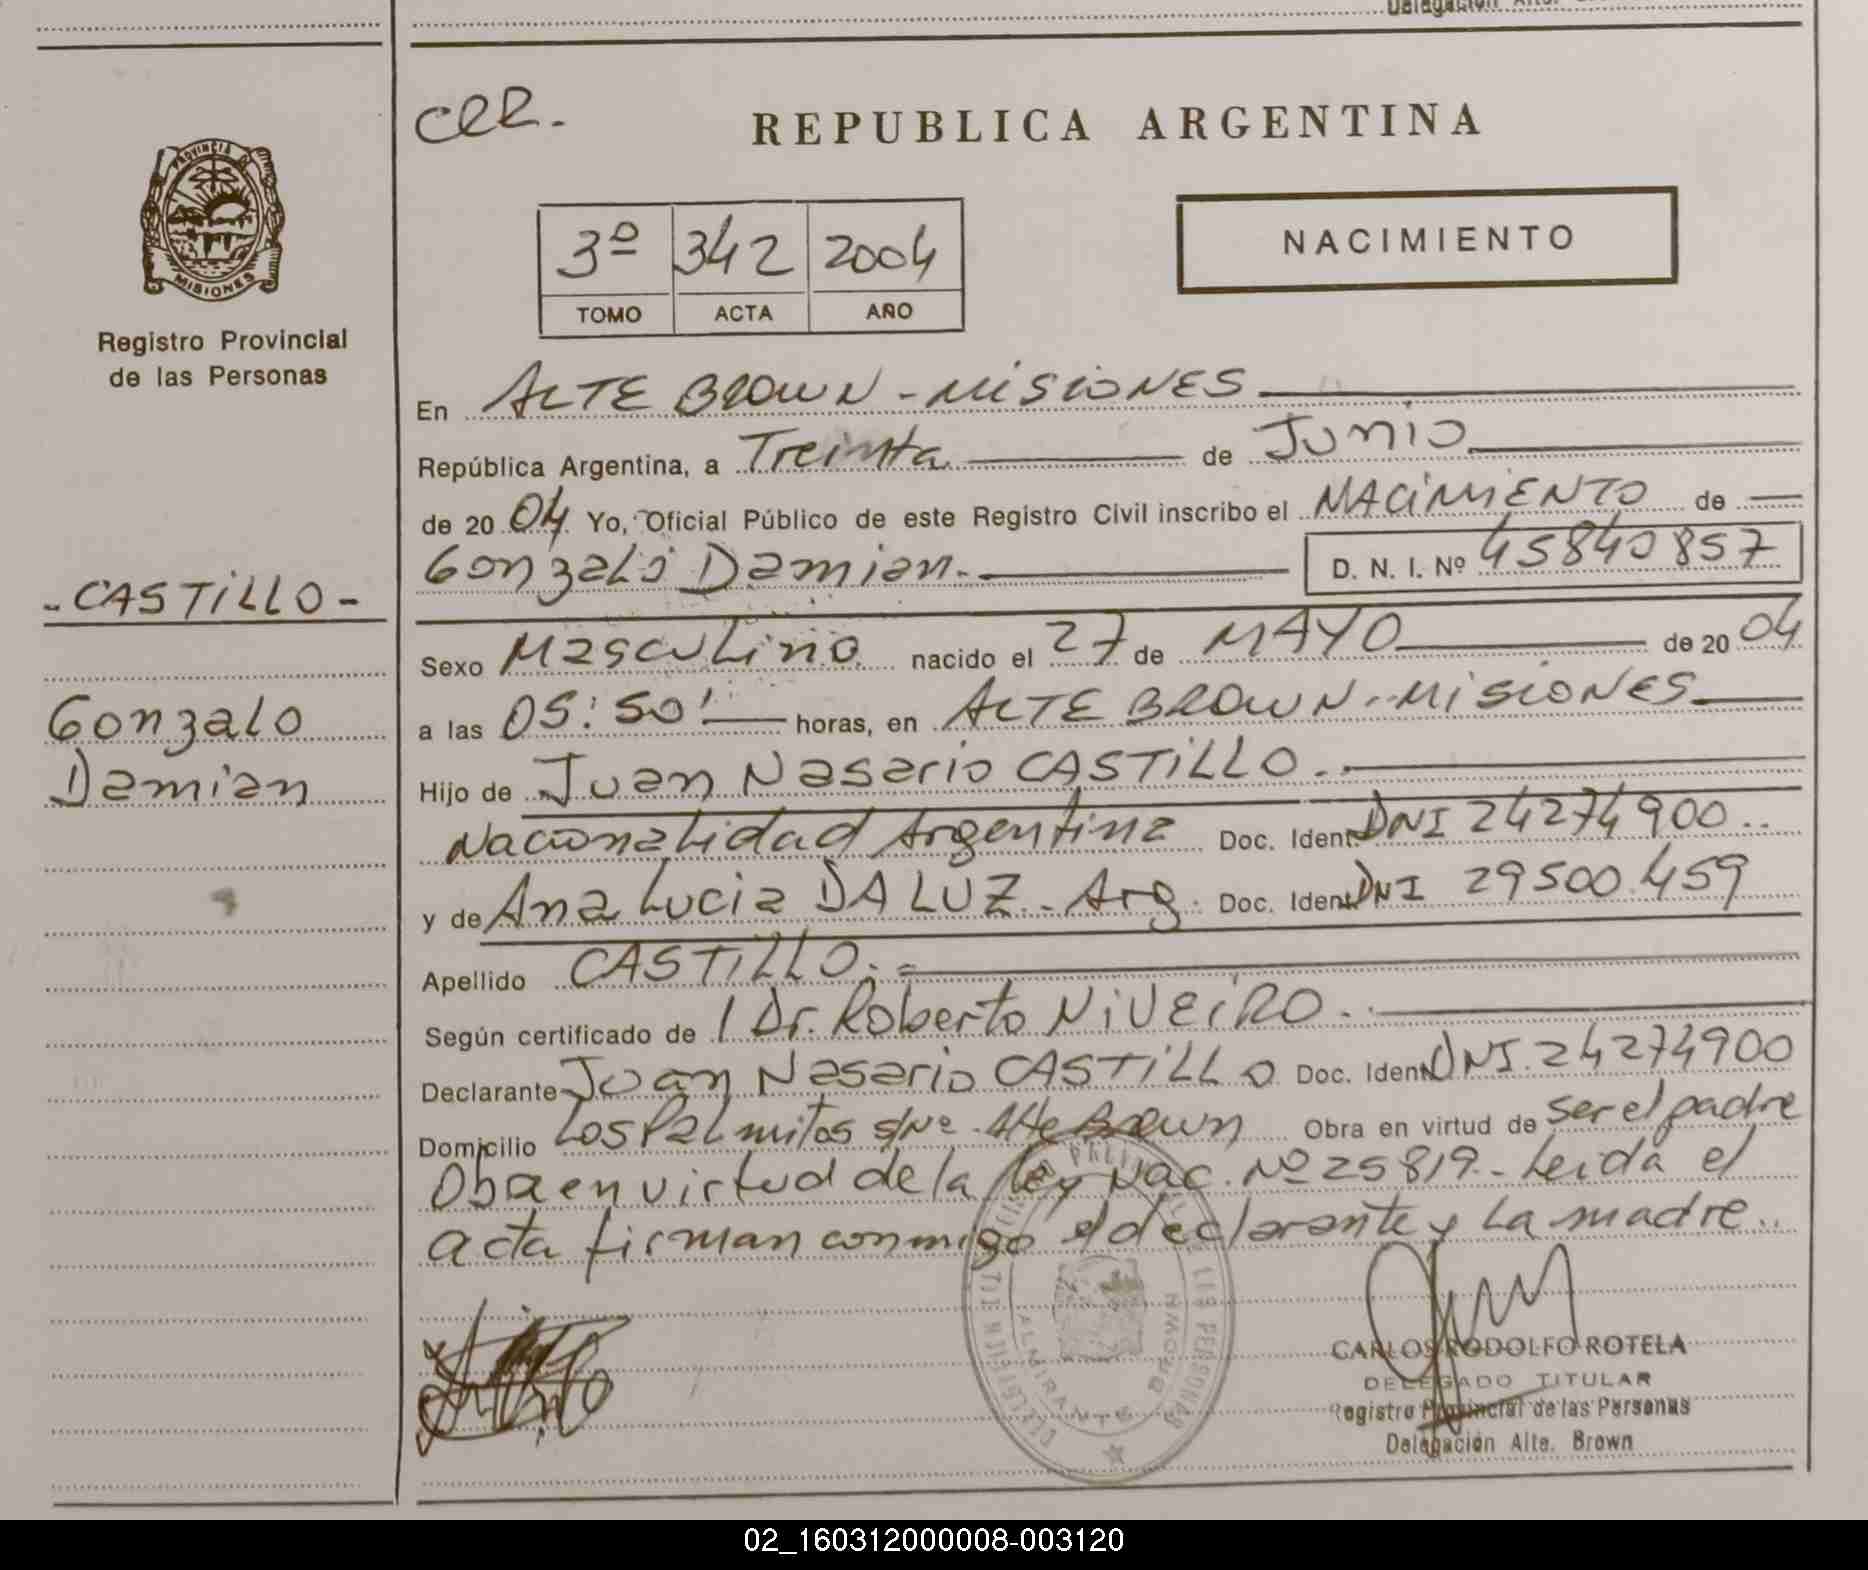 Delegación Alte.
CER.
REPUBLICA ARGENTINA
PROVINCIA DE
MISIONES
Registro Provincial
de las Personas
3º 342 2004
TOMO ACTA AÑO
NACIMIENTO
En ALTE BROWN - MISIONES
República Argentina, a Treinta de Junio
de 20 04 Yo, Oficial Público de este Registro Civil inscribo el NACIMIENTO de
Gonzalo Damian.- D. N. I. Nº 45840857
- CASTILLO -
Gonzalo
Damian
Sexo Masculino nacido el 27 de MAYO de 20 04
a las 05:50' horas, en ALTE BROWN - MISIONES
Hijo de Juan Nasario CASTILLO.-
Nacionalidad Argentina Doc. Ident. DNI 24274900..
y de Ana Lucia DA LUZ.. Arg. Doc. Ident. DNI 29500.459
Apellido CASTILLO.-
Según certificado de / Dr. Roberto NIVEIRO.-
Declarante Juan Nasario CASTILLO Doc. Ident. DNI. 24274900
Domicilio Los Palmitos s/Nº. Alte Brown Obra en virtud de ser el padre
Obra en virtud de la Ley Nac. Nº 25819.- Leida el
acta firman conmigo el declarante y La madre..
ALMIRANTE BROWN
CARLOS RODOLFO ROTELA
DELEGADO TITULAR
Registro Provincial de las Personas
Delegación Alte. Brown
02_160312000008-003120